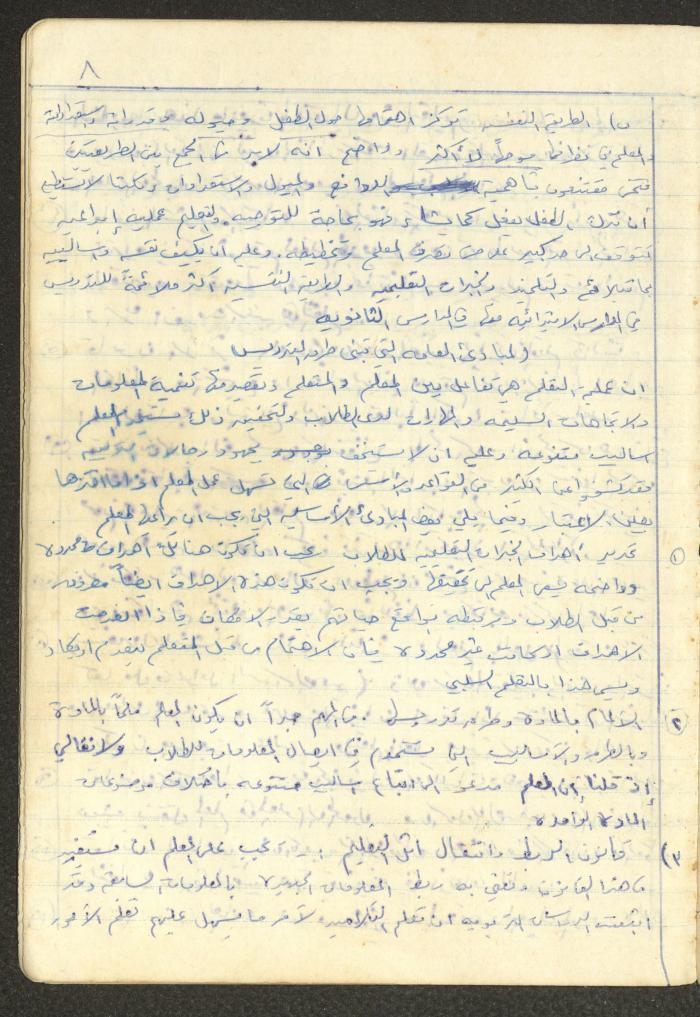 ٨
ب) الطريقة النفسية تركز اهتمامها حول الطفل وميوله وقدراته واستعداداته
والمعلم في نظرنا موجهاً لا أكثر وواضح انه لابد من الجمع بين الطريقتين
فنحن مقتنعون بأهمية الدوافع والميول والاستعدادات ولكننا لا نستطيع
أن نترك الطفل يعمل كما يشاء فهو بحاجة للتوجيه والتعليم عملية إبداعية
تتوقف الى حد كبير على حسن تصرف المعلم وتخطيطه. وعليه أن يكيف نفسه وأساليبه
بما يتلائم والتلميذ والخبرات التعليمية والطريقة النفسية أكثر ملائمة للتدريس
في المدارس الابتدائية منها في المدارس الثانوية
المبادئ العامة التي تبنى طرق التدريس
ان عملية التعلم هي تفاعل بين المعلم والمتعلم ونقصد منها تنمية المعلومات
والاتجاهات السليمة والمهارات لدى الطلاب ولتحقيق ذلك يستخدم المعلم
اساليب متنوعة وعليه ان لا يستخف بجهود رجالات التربية
فقد كشفوا عن الكثير من القواعد والأسس التي تسهل عمل المعلم اذا ما اخذها
بعين الاعتبار وفيما يلي بعض المبادئ الأساسية التي يجب ان يراعيها المعلم
١) تحديد أهداف الخبرات التعليمية للطلاب يجب ان تكون هنالك أهداف محدودة
وواضحة يسعى المعلم الى تحقيقها ويجب ان تكون هذه الاهداف ايضاً معروفة
من قبل الطلاب ومرتبطة بواقع حياتهم بقدر الامكان فإذا انعدمت
الاهداف او كانت غير محدودة فإن الاهتمام من قبل المتعلم ينعدم او يكاد
ويسمى هذا بالتعلم السلبي
٢) الالمام بالمادة وطرق تدريسها. من المهم جداً ان يكون المعلم ملماً بالمادة
وبالطرق والأساليب التي يستخدم في ايصال المعلومات للطلاب ولا نغالي
إذ قلنا إن المعلم مدعو الى اتباع اساليب متنوعة باختلاف موضوعات
المادة الواحدة
٣) قانون الربط وانتقال اثر التعليم. يجب على المعلم ان يستفيد
من هذا القانون ونعني به ربط المعلومات الجديدة بالمعلومات السابقة وقد
اثبتت الدراسات التربوية ان تعلم التلاميذ لأمر ما يسهل عليهم تعلم الأمور